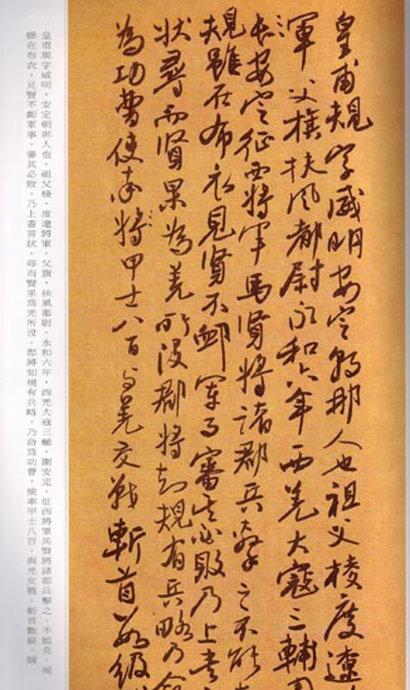 皇甫規字威明安定朝那人也祖父棱度遼
軍父旗扶風都尉永和六年西羌大寇三輔圍
安定征西將軍馬賢將諸郡兵擊之不能
規雖在布衣見賢不卹軍事審其必敗乃上書
狀尋而賢果為羌所沒郡將知規有兵略乃命
為功曹使率將甲士八百與羌交戰斬首數級
皇甫規字威明，安定朝那人也。祖父棱，度遼將軍，父旗，扶風都尉。永和六年，西羌大寇三輔，圍安定，征西將軍馬賢將諸郡兵擊之，不能克。規
雖在布衣，見賢不卹軍事，審其必敗，乃上書言狀。尋而賢果為羌所沒。郡將知規有兵略，乃命為功曹，使率甲士八百，與羌交戰，斬首數級，賊